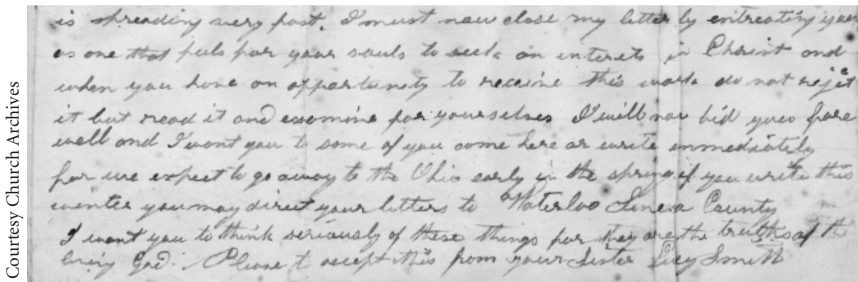 is spreading very fast. I must now close my letter by entreating you
as one that feels for your souls to seek an interest in Christ and
when you have an opportunity to receive this work do not reject
it but read it and examine for yourselves I will now bid you fare
well and I want you to some of you come here or write immediately
for we expect to go away to the Ohio early in the spring if you write this
winter you may direct your letters to Waterloo Seneca County
I want you to think seriously of these things for they are the truths of the
living God. Please to accept this from your Sister Lucy Smith
Courtesy Church Archives